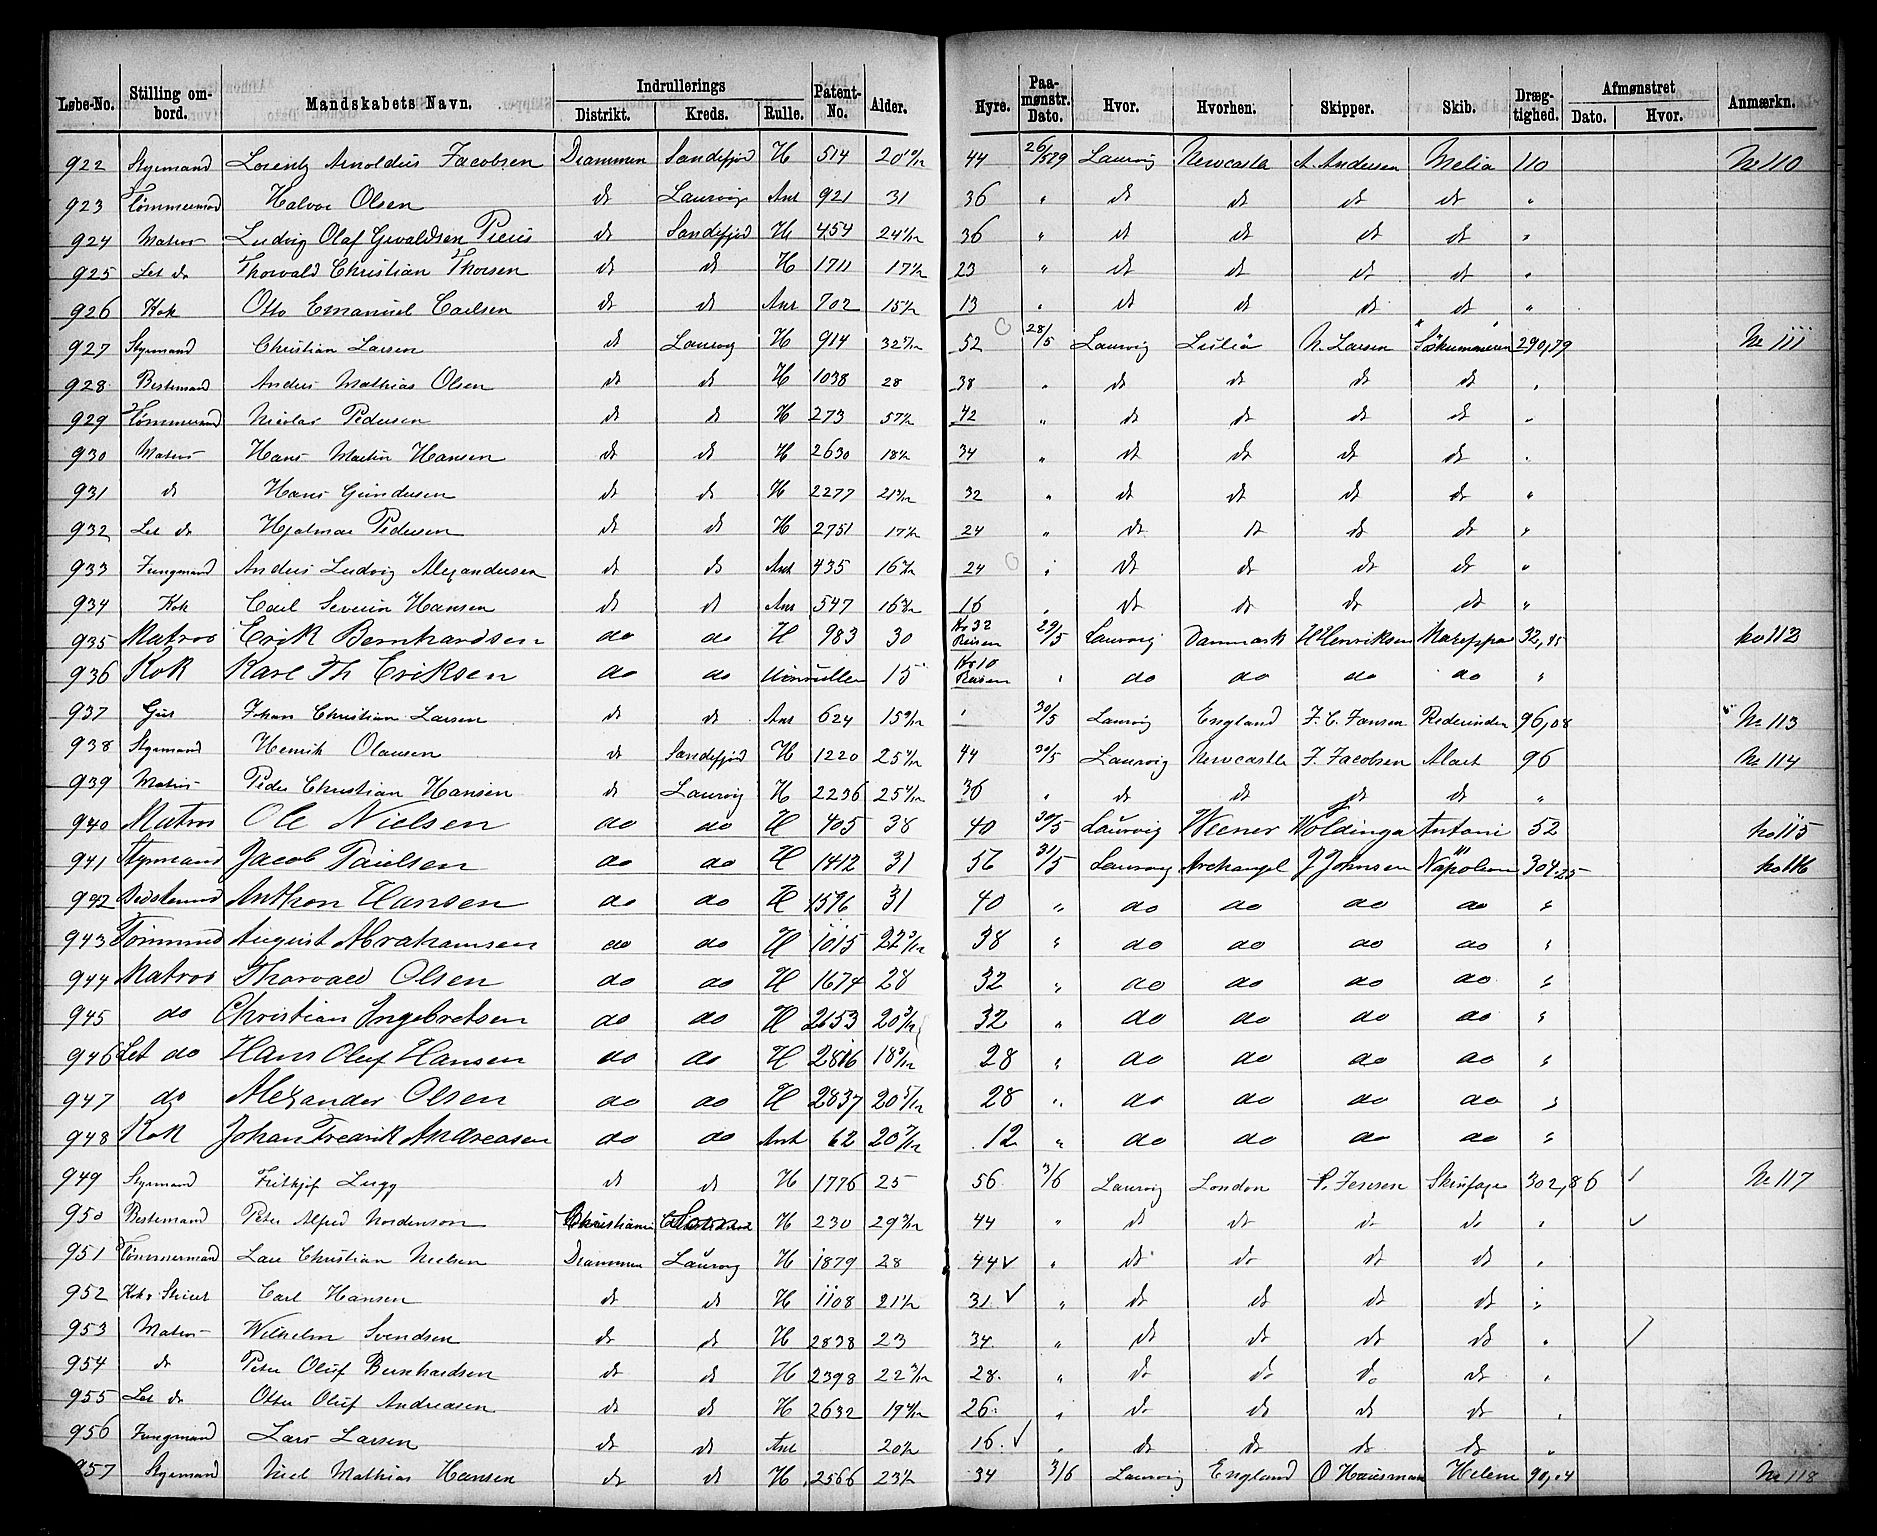 Løbe-No. | Stilling ombord. | Mandskabets Navn. | Indrullerings Distrikt. | Kreds. | Rulle. | Patent-No. | Alder. | Hyre. | Paamønstr. Dato. | Hvor. | Hvorhen. | Skipper. | Skib. | Drægtighed. | Afmønstret Dato. | Hvor. | Anmærkn.
922 Styrmand Lorentz Arnoldus Jacobsen Drammen Sandefjord H 514 20 44 26/5 79 Laurvig Newcastle A. Andersen Melia 110 No 110
923 Tømmermand Halvor Olsen dt Laurvig Ant 921 31 36 " dt dt dt dt "
924 Matros Ludvig Olaf Sandefjord H 454 36 " dt dt dt dt "
925 Let do Thorvald Christian Thorsen dt dt H 1711 23 " dt dt dt dt "
926 Kok Otto Emanuel Carlsen dt dt Ant 702 13 " dt dt dt dt "
927 Styrmand Christian Larsen dt Laurvig H 914 52 28/5 Laurvig Luleå N. Larsen 290,79 No 111
928 Bestemand Anders Mathias Olsen dt dt H 1038 28 38 " dt dt dt dt "
929 Tømmermand Nicolai Pedersen dt dt H 273 42 " dt dt dt dt "
930 Matros Hans Martin Hansen dt dt H 2630 34 " dt dt dt dt "
931 dt Hans Gundersen dt dt H 2277 32 " dt dt dt dt "
932 Let do Hjalmar Pedersen dt dt H 2751 24 " dt dt dt dt "
933 Jungmand Anders Ludvig Alexandersen dt dt Ant 435 24 " dt dt dt dt "
934 Kok Carl Severin Hansen dt dt Ant 547 16 " dt dt dt dt "
935 Matros Erik Bernhardsen do do H 983 30 Kr 32 Reisen 29/5 Laurvig Danmark H Henriksen 32,45 No 112
936 Kok Karl Th Eriksen do do 15 Kr 10 Reisen " do do do do "
937 Gut Johan Christian Larsen dt dt Ant 624 15 " 30/5 Laurvig England J. C. Jansen 96,08 No 113
938 Styrmand Henrik Olausen dt Sandefjord H 1220 25 44 30/5 Laurvig Newcastle J. Jacobsen Alart 96 No 114
939 Matros Peder Christian Hansen dt Laurvig H 2236 25 36 " dt dt dt dt "
940 Matros Ole Nielsen do do H 405 38 40 30/5 Laurvig Woldinga Antoni 52 No 115
941 Styrmand Jacob Paulsen do do H 1412 31 56 31/5 Laurvig Archangel J Johnsen Napoleon 304,25 No 116
942 Bedstemand Anthon Hansen do do H 1596 31 40 " do do do do "
943 Tømmmd August Abrahamsen do do H 1015 22 38 " do do do do "
944 Matros Thorvald Olsen do do H 1674 28 32 " do do do do "
945 do Christian Ingebretsen do do H 2653 20 32 " do do do do "
946 Let do Hans Oluf Hansen do do H 2816 18 28 " do do do do "
947 do Alexander Olsen do do H 2837 20 28 " do do do do "
948 Kok Johan Fredrik Andreasen do do Ant 62 20 12 " do do do do "
949 Styrmand Fritkjof Lugg dt dt H 1776 25 56 3/6 Laurvig London P. Jensen 302,86 No 117
950 Bestemand Peter Alfred Nordenson Christiania H 230 29 44 " dt dt do do "
951 Tømmermand Lars Christian Nielsen Drammen Laurvig H 1879 28 44 " dt dt dt dt "
952 Carl Hansen dt dt H 1108 31 " dt dt dt dt "
953 Matros Wilhelm Svendsen dt dt H 2838 23 34 " dt dt dt dt "
954 dt Peter Oluf Bernhardsen dt dt H 2398 22 28 " dt dt do dt "
955 Let do Otto Oluf Andreasen dt dt H 2632 19 26 " do dt dt dt "
956 Jungmand Lars Larsen dt dt Ant 16 " dt dt dt dt "
957 Styrmand Niel Mathias Hansen dt dt H 2566 34 3/6 Laurvig England O Hausman Helene 90,04 No 118